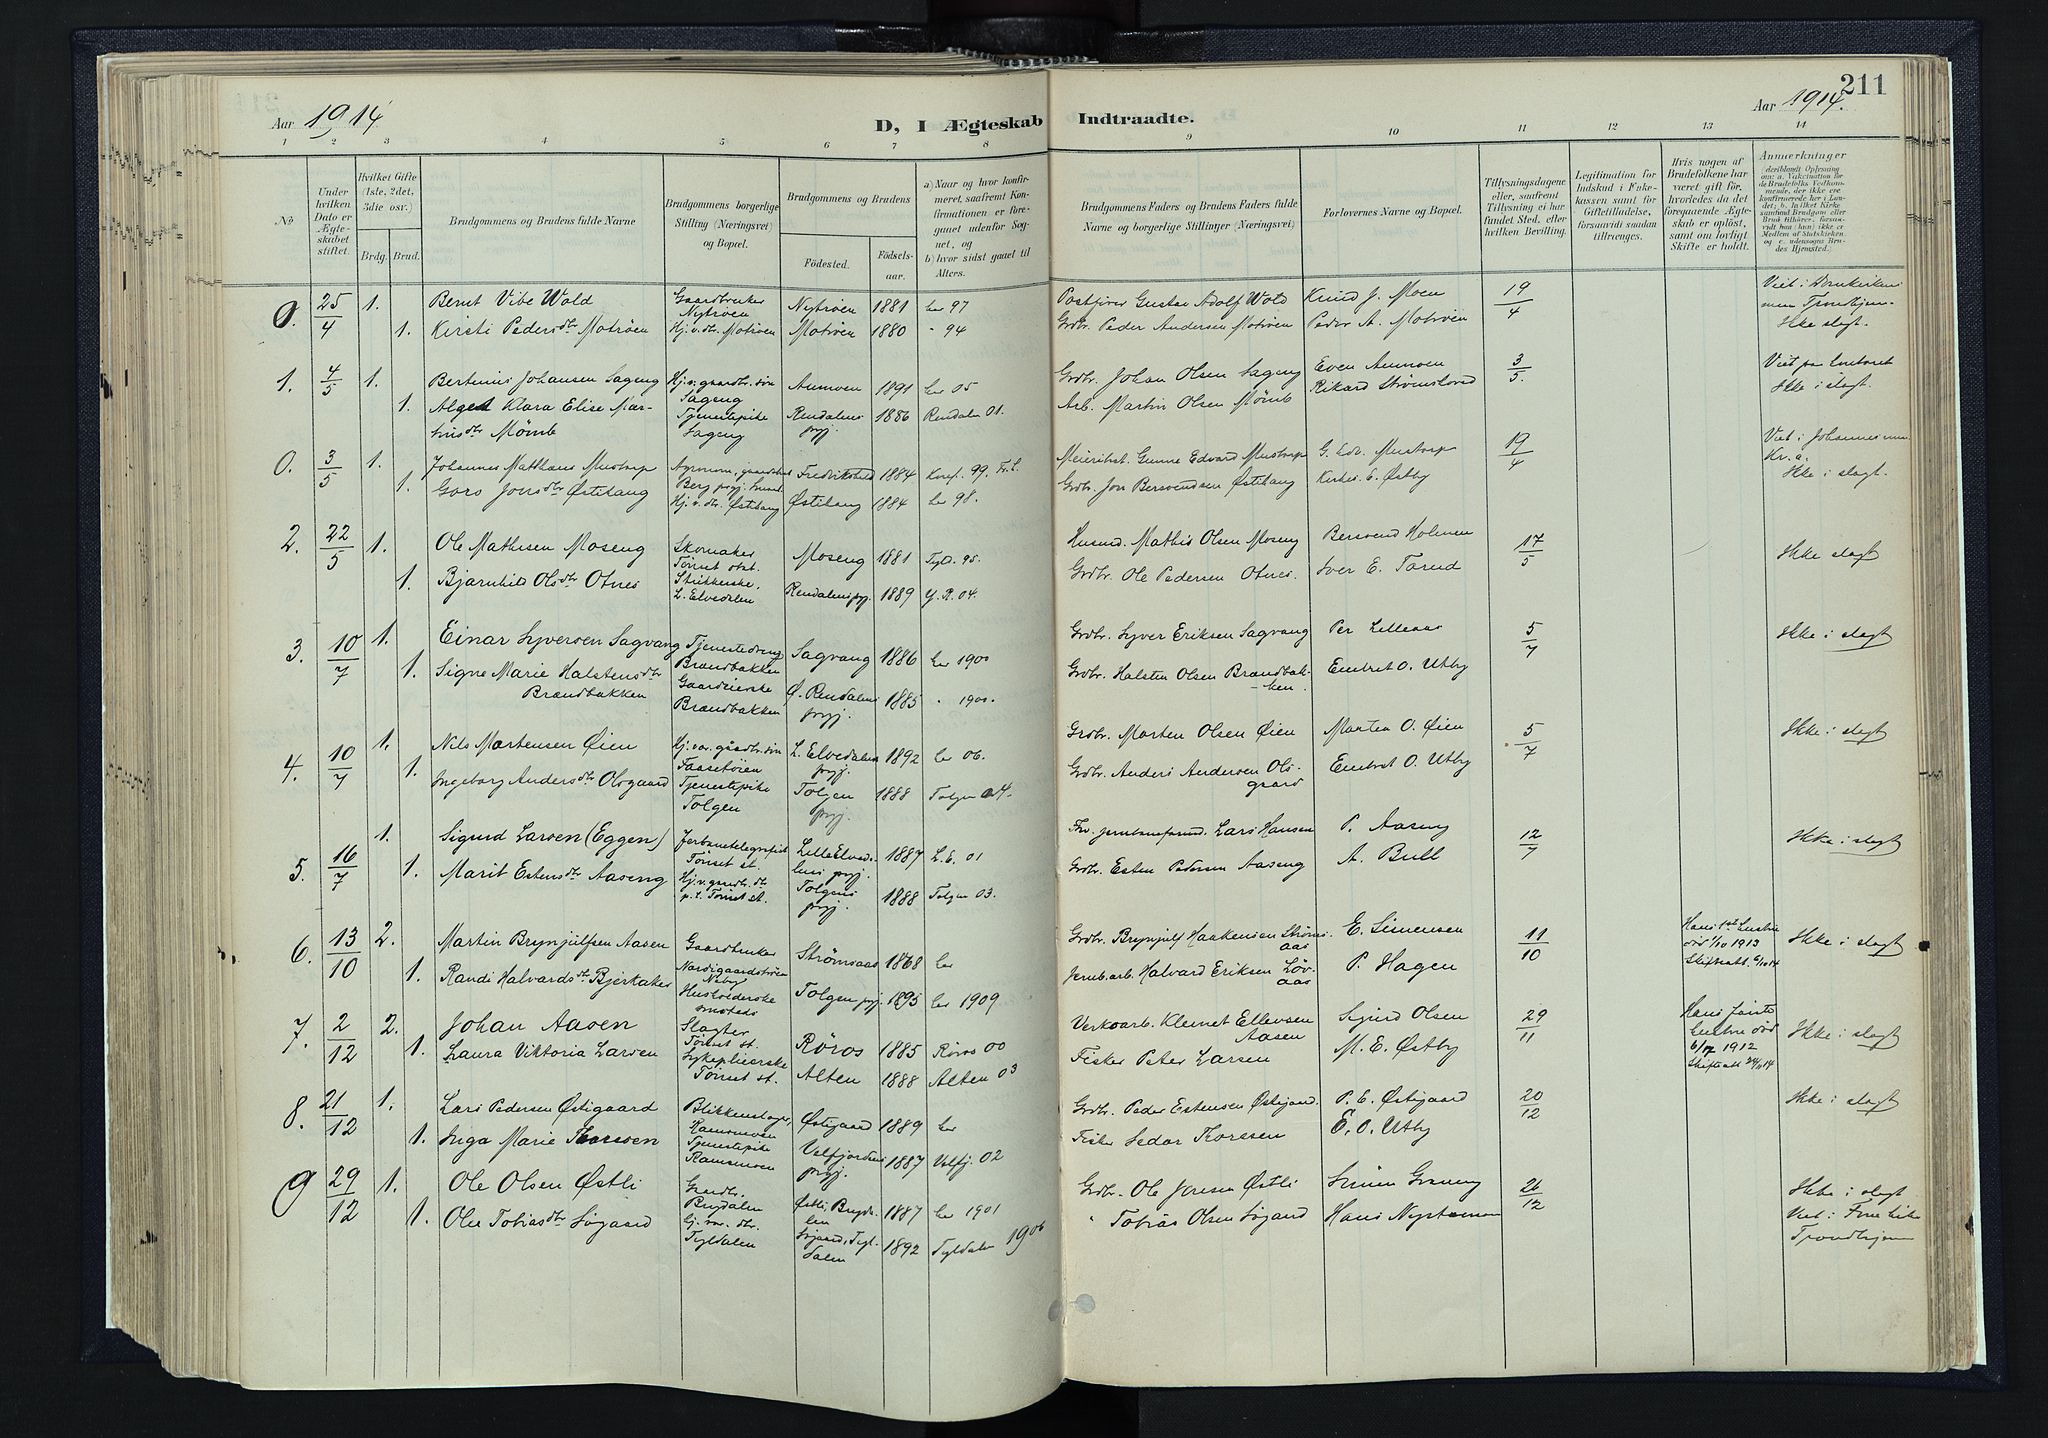 211
Aar 1914
D, I Ægteskab Indtraadte.
Aar 1914.
1 2 3 4 5 6 7 8 9 10 11 12 13 14
No
Under hvilken Dato er Ægteskabet stiftet.
Hvilket Gifte (1ste, 2det, 3die osv.)
Brdg. Brud.
Brudgommens og Brudens fulde Navne
Brudgommens borgerlige Stilling (Næringsvei) og Bopæl.
Brudgommens og Brudens
Fødested.
Fødselsaar.
a) Naar og hvor konfirmeret, saafremt Konfirmationen er foregaaet udenfor Sognet, og
b) hvor sidst gaaet til Alters.
Brudgommens Faders og Brudens Faders fulde Navne og borgerlige Stillinger (Næringsvei)
Forlovernes Navne og Bopæl.
Tillysningsdagene eller, saafremt Tillysning ei har fundet Sted, efter hvilken Bevilling.
Legitimation for Indskud i Enkekassen samt for Giftetilladelse, forsaavidt saadan tiltrænges.
Hvis nogen af Brudefolkene har været gift før, hvorledes da det foregaaende Ægteskab er opløst, samt om lovligt Skifte er holdt.
Anmerkninger
0. 25/4 1. Bernt Vibe Wold Gaardbruker Nytrøen Nytrøen 1881 her 97 Gustav Adolf Wold Knud J. Moen 19/4
1. Kirsti Pedersdtr Motrøen Hj.v. dtr. Motrøen Motrøen 1880 " 94 Grdbr. Peder Andersen Motrøen Peder A. Motrøen Ikke slegt.
1. 4/5 1. Bertinius Johansen Sageng Hj.v. gaardbr. søn Sageng Aumoen 1891 her 05 Grdbr. Johan Olsen Sageng Even Aumoen 3/5. Ikke i slegt.
1. Klara Elise Martinsdtr Mømb Tjenestepike Sageng Rendalens prgj. 1886 Rendalen 01. Arb. Martin Olsen Mømb
0. 3/5 1. Johannes Matthæus Mustorp Fredrikshald 1884 99. Mustorp 19/4 Ikke i slegt.
1. Goro Jonsdtr Østihaug Hj.v. dtr. Østihaug Østihaug 1884 her 98. Grdbr. Jon Bersvendsen Østihaug E. Østby
2. 22/5 1. Ole Mathisen Moseng Skomaker Tønset st. Moseng 1881 Tyld. 95. Husmd. Mathis Olsen Moseng Bersvend Holmen 17/5 Ikke slegt
1. Bjarnhild Olsdtr Otnes L. Elvedalen Rendalens prgj. 1889 Y. R. 04. Grdbr. Ole Pedersen Otnes. Iver E. Torud
3. 10/7 1. Einar Syversen Sagvang Tjenestedreng Brændbakken Sagvang 1886 her 1900 Grdbr. Syver Eriksen Sagvang Per Lilleaas 5/7 Ikke i slegt
1. Signe Marie Halstensdtr Brændbakken Gaardeierske Brændbakken Ø. Rendalens prgj. 1885 " 1900. Grdbr. Halsten Olsen Brændbakken. Embret O. Utby
4. 10/7 1. Nils Mortensen Øien Hj.v. gaardbr. søn Faasetøien L. Elvedalens prgj. 1892 her 06. Grdbr. Morten Olsen Øien Morten O. Øien 5/7 Ikke i slegt
1. Ingeborg Andersdtr Olsgaard Tjenestepike Tolgen Tolgen prgj. 1888 Tolgen 04. Grdbr. Anders Andersen Olsgaard Embret O. Utby
5. 16/7 1. Sigurd Larsen (Eggen) Jerbanetelegrafist Tønset st. Lille Elvedalens prgj. 1887 L. E. 01 Lars Hansen P. Aaseng 12/7 Ikke i slegt
1. Marit Estensdtr Aaseng Hj.v. gaardbr. dtr p.t. Tønset st. Tolgens prgj. 1888 Tolgen 03. Grdbr. Esten Pedersen Aaseng A. Bull
6. 13/10 2. Martin Brynjulfsen Aasen Gaardbruker Strømsaas 1868 her Grdbr. Brynjulf Haakensen Strømsaas E. Simensen 11/10 Hans 1ste hustru død 1/10 1913 Skifteatt. 6/10 14 Ikke i slegt
1. Randi Halvardsdtr Bjerkaker Husholderske smsteds Tolgen prgj. 1895 her 1909 Jernb.arb. Halvard Eriksen Løvaas P. Hagen
7. 2/12 2. Johan Aasen Slagter Tønset st. Røros 1885 Røros 00 Verksarb. Klemet Ellevsen Aasen Sigurd Olsen 29/11 Hans første hustru død 6/7 1912 Skifteatt 24/11 14 Ikke i slegt
1. Laura Viktoria Larsen Sykepleierske Tønset st. Alten 1888 Alten 03 Fisker Peter Larsen M. E. Østby
8. 21/12 1. Lars Pedersen Østigaard Blikkenslager, Ramsmoen Østigaard 1889 her Grdbr. Peder Estensen Østigaard. P. E. Østigaard 20/12 Ikke i slegt
1. Inga Marie Thoresen Tjenestepike Ramsmoen Velfjordens prgj. 1887 Velfj. 02 Fisker Sedar Thoresen E. O. Utby
9 29/12 1. Ole Olsen Østli Gaardbr. Brydalen Østli, Brydalen 1887 her 1901 Grdbr. Ole Jonsen Østli Simen Grøneng 26/12 Ikke i slegt
1. Olia Tobiasdtr Søgaard Hj. v. dtr. Tyldalen Søgaard, Tyldalen 1892 Tyldalen 1906 " Tobias Olsen Søgaard Hans Trondhjem